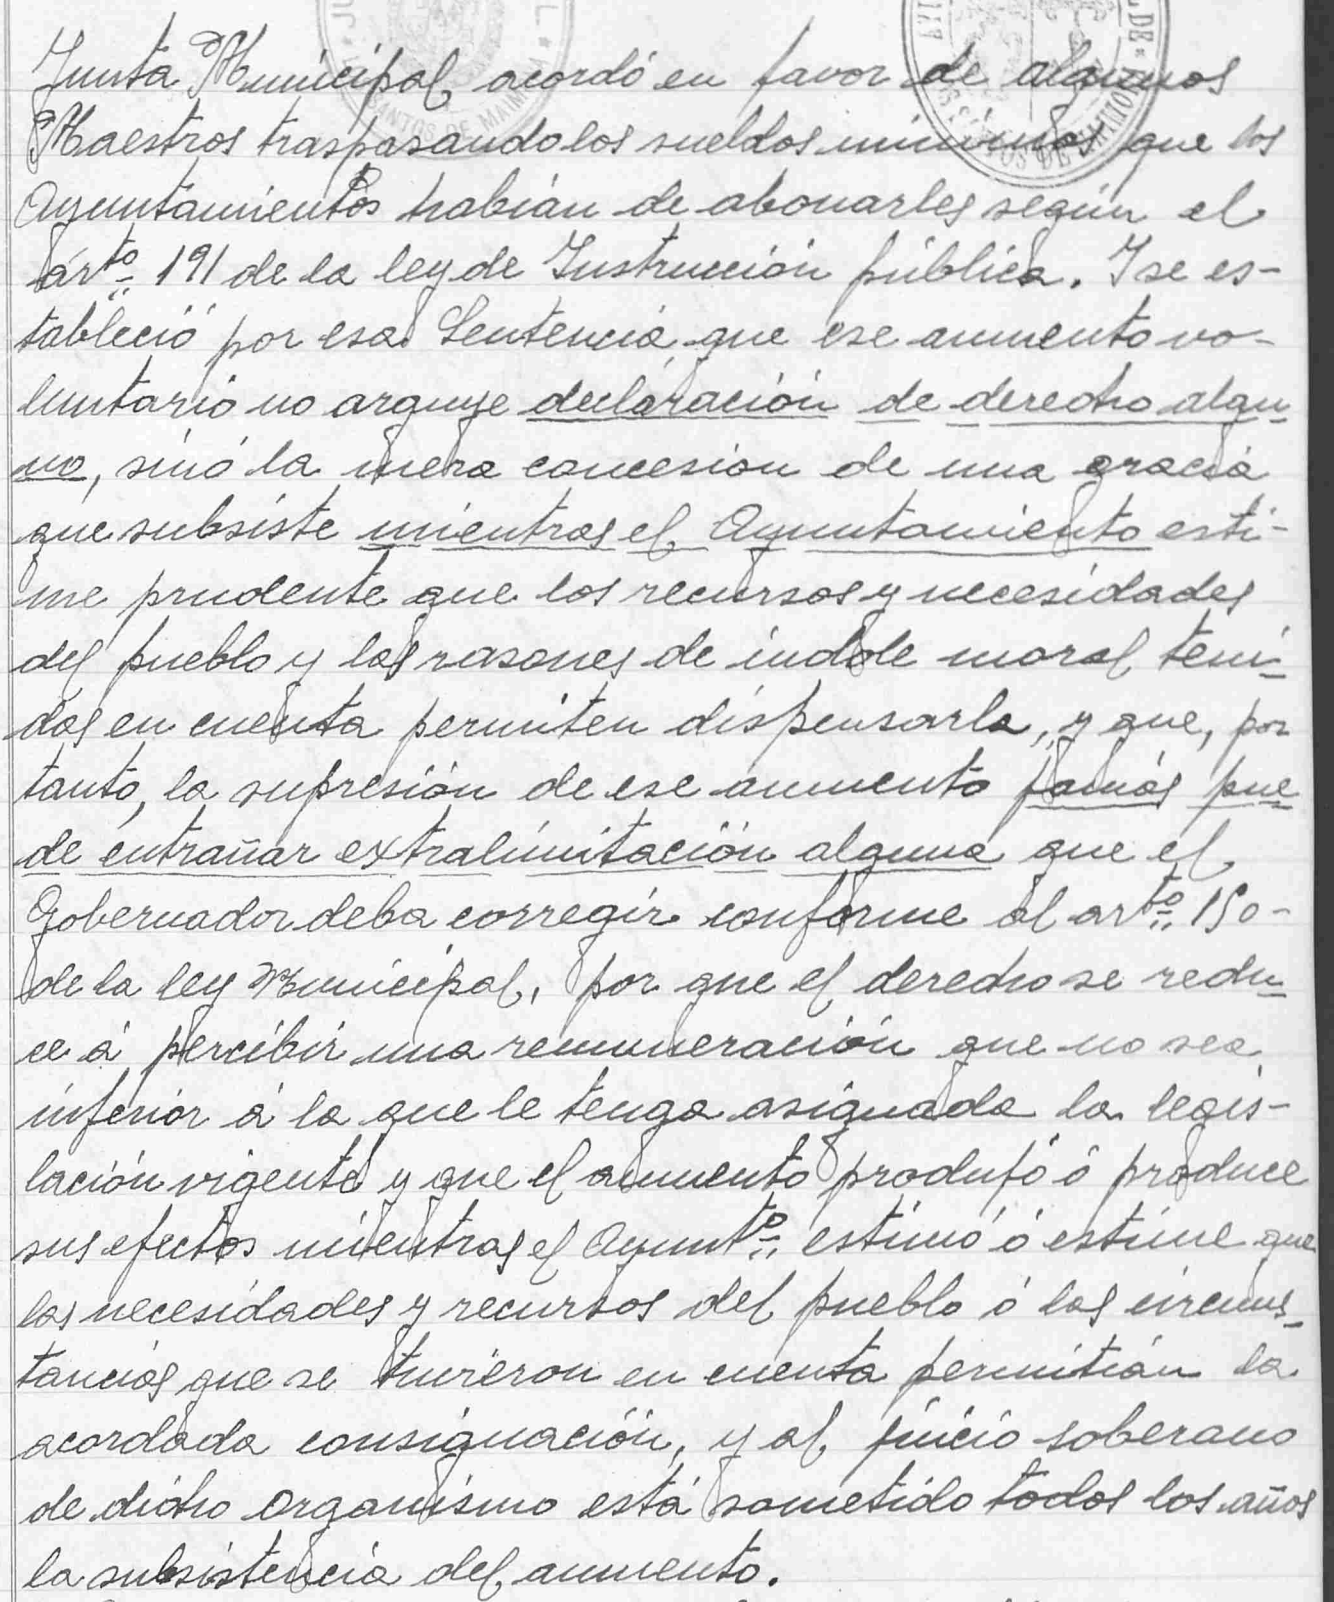 Junta Municipal acordó en favor de algunos
Maestros traspasando los sueldos mínimos que los
Ayuntamientos habián de abonarles según el
artº. 191 de la ley de Instrucción pública. Y se es-
tableció por esa Sentencia que ese aumento vo-
luntario no arguye declaración de derecho algu-
no, sinó la mera concesion de una gracia
que subsiste mientras el Ayuntamiento esti-
me prudente que los recursos y necesidades
del pueblo y las rasones de índole moral teni-
das en cuenta permiten dispensarla, y que, por
tanto, la supresión de ese aumento jamás pue-
de entrañar extralimitación alguna que el
Gobernador deba corregir conforme al artº. 150-
de la ley Municipal, por que el derecho se redu-
ce á percibir una remuneración que no sea
inferior á la que le tenga asignada la legis-
lación vigente y que el aumento produjo ó produce
sus efectos mientras el Ayuntº. estimó ó estime que
las necesidades y recursos del pueblo ó las circuns-
tancias que se tuvieron en cuenta permitián la
acordada consignación, y al juicio soberano
de dicho organismo está sometido todos los años
la subsistencia del aumento.